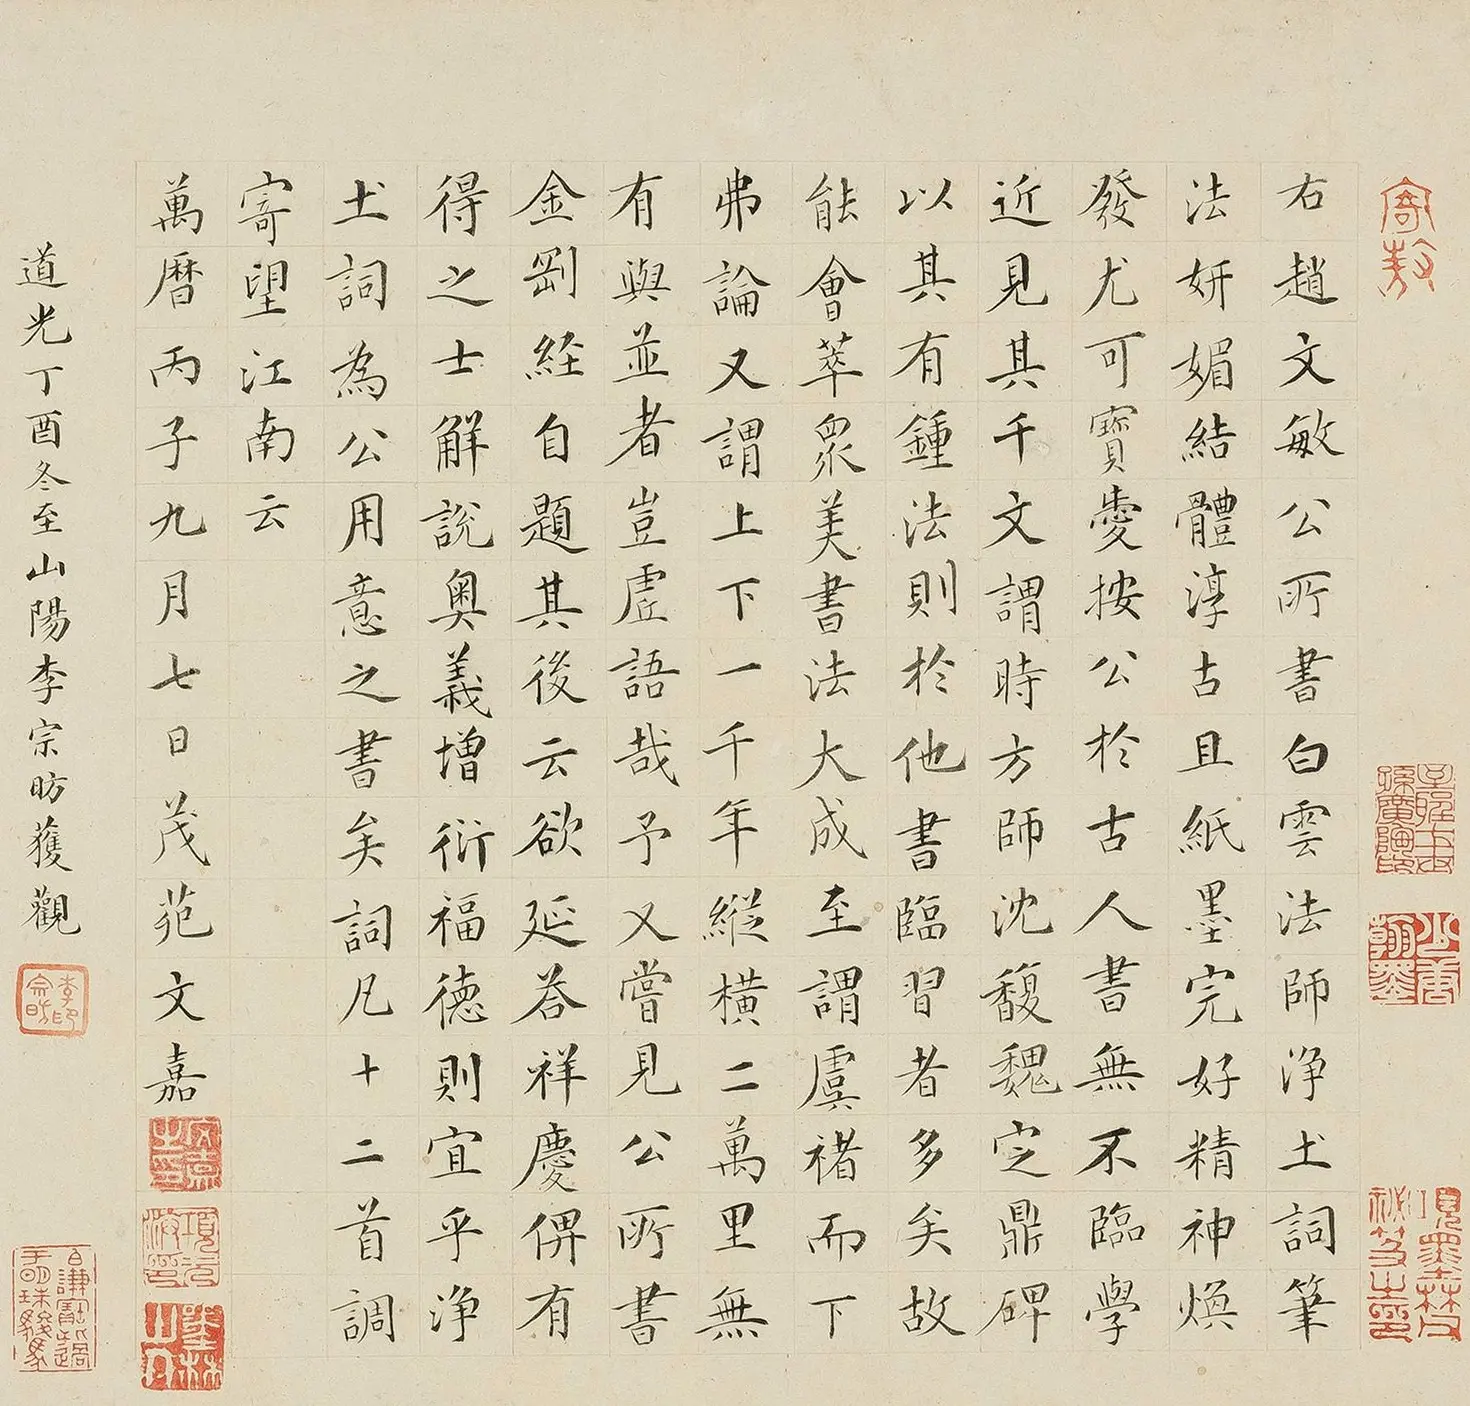 右趙文敏公所書白雲法師淨土詞筆
法妍媚結體淳古且紙墨完好精神煥
發尤可寶愛按公於古人書無不臨學
近見其千文謂時方師沈馥魏定鼎碑
以其有鍾法則於他書臨習者多矣故
能會萃眾美書法大成至謂虞褚而下
弗論又謂上下一千年縱橫二萬里無
有與並者豈虛語哉予又嘗見公所書
金剛經自題其後云欲延荅祥慶俾有
得之士解說奧義增衍福德則宜乎淨
土詞為公用意之書矣詞凡十二首調
寄望江南云
萬曆丙子九月七日茂苑文嘉
道光丁酉冬至山陽李宗昉獲觀
李宗昉印
文嘉之印
項元汴印
墨林山人
項墨林父祕笈之印
寄敖